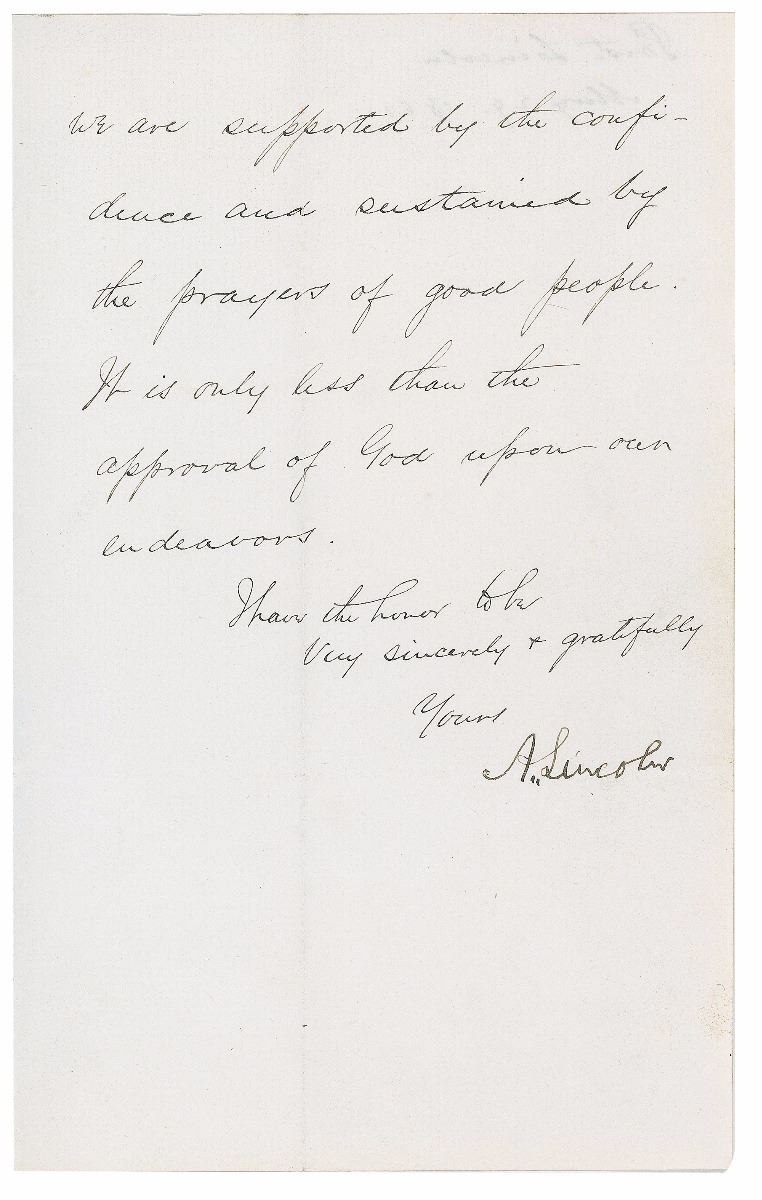 we are supported by the confi-
dence and sustained by
the prayers of good people.
It is only less than the
approval of God upon our
endeavors.
I have the honor to be
Very sincerely & gratefully
Yours
A. Lincoln